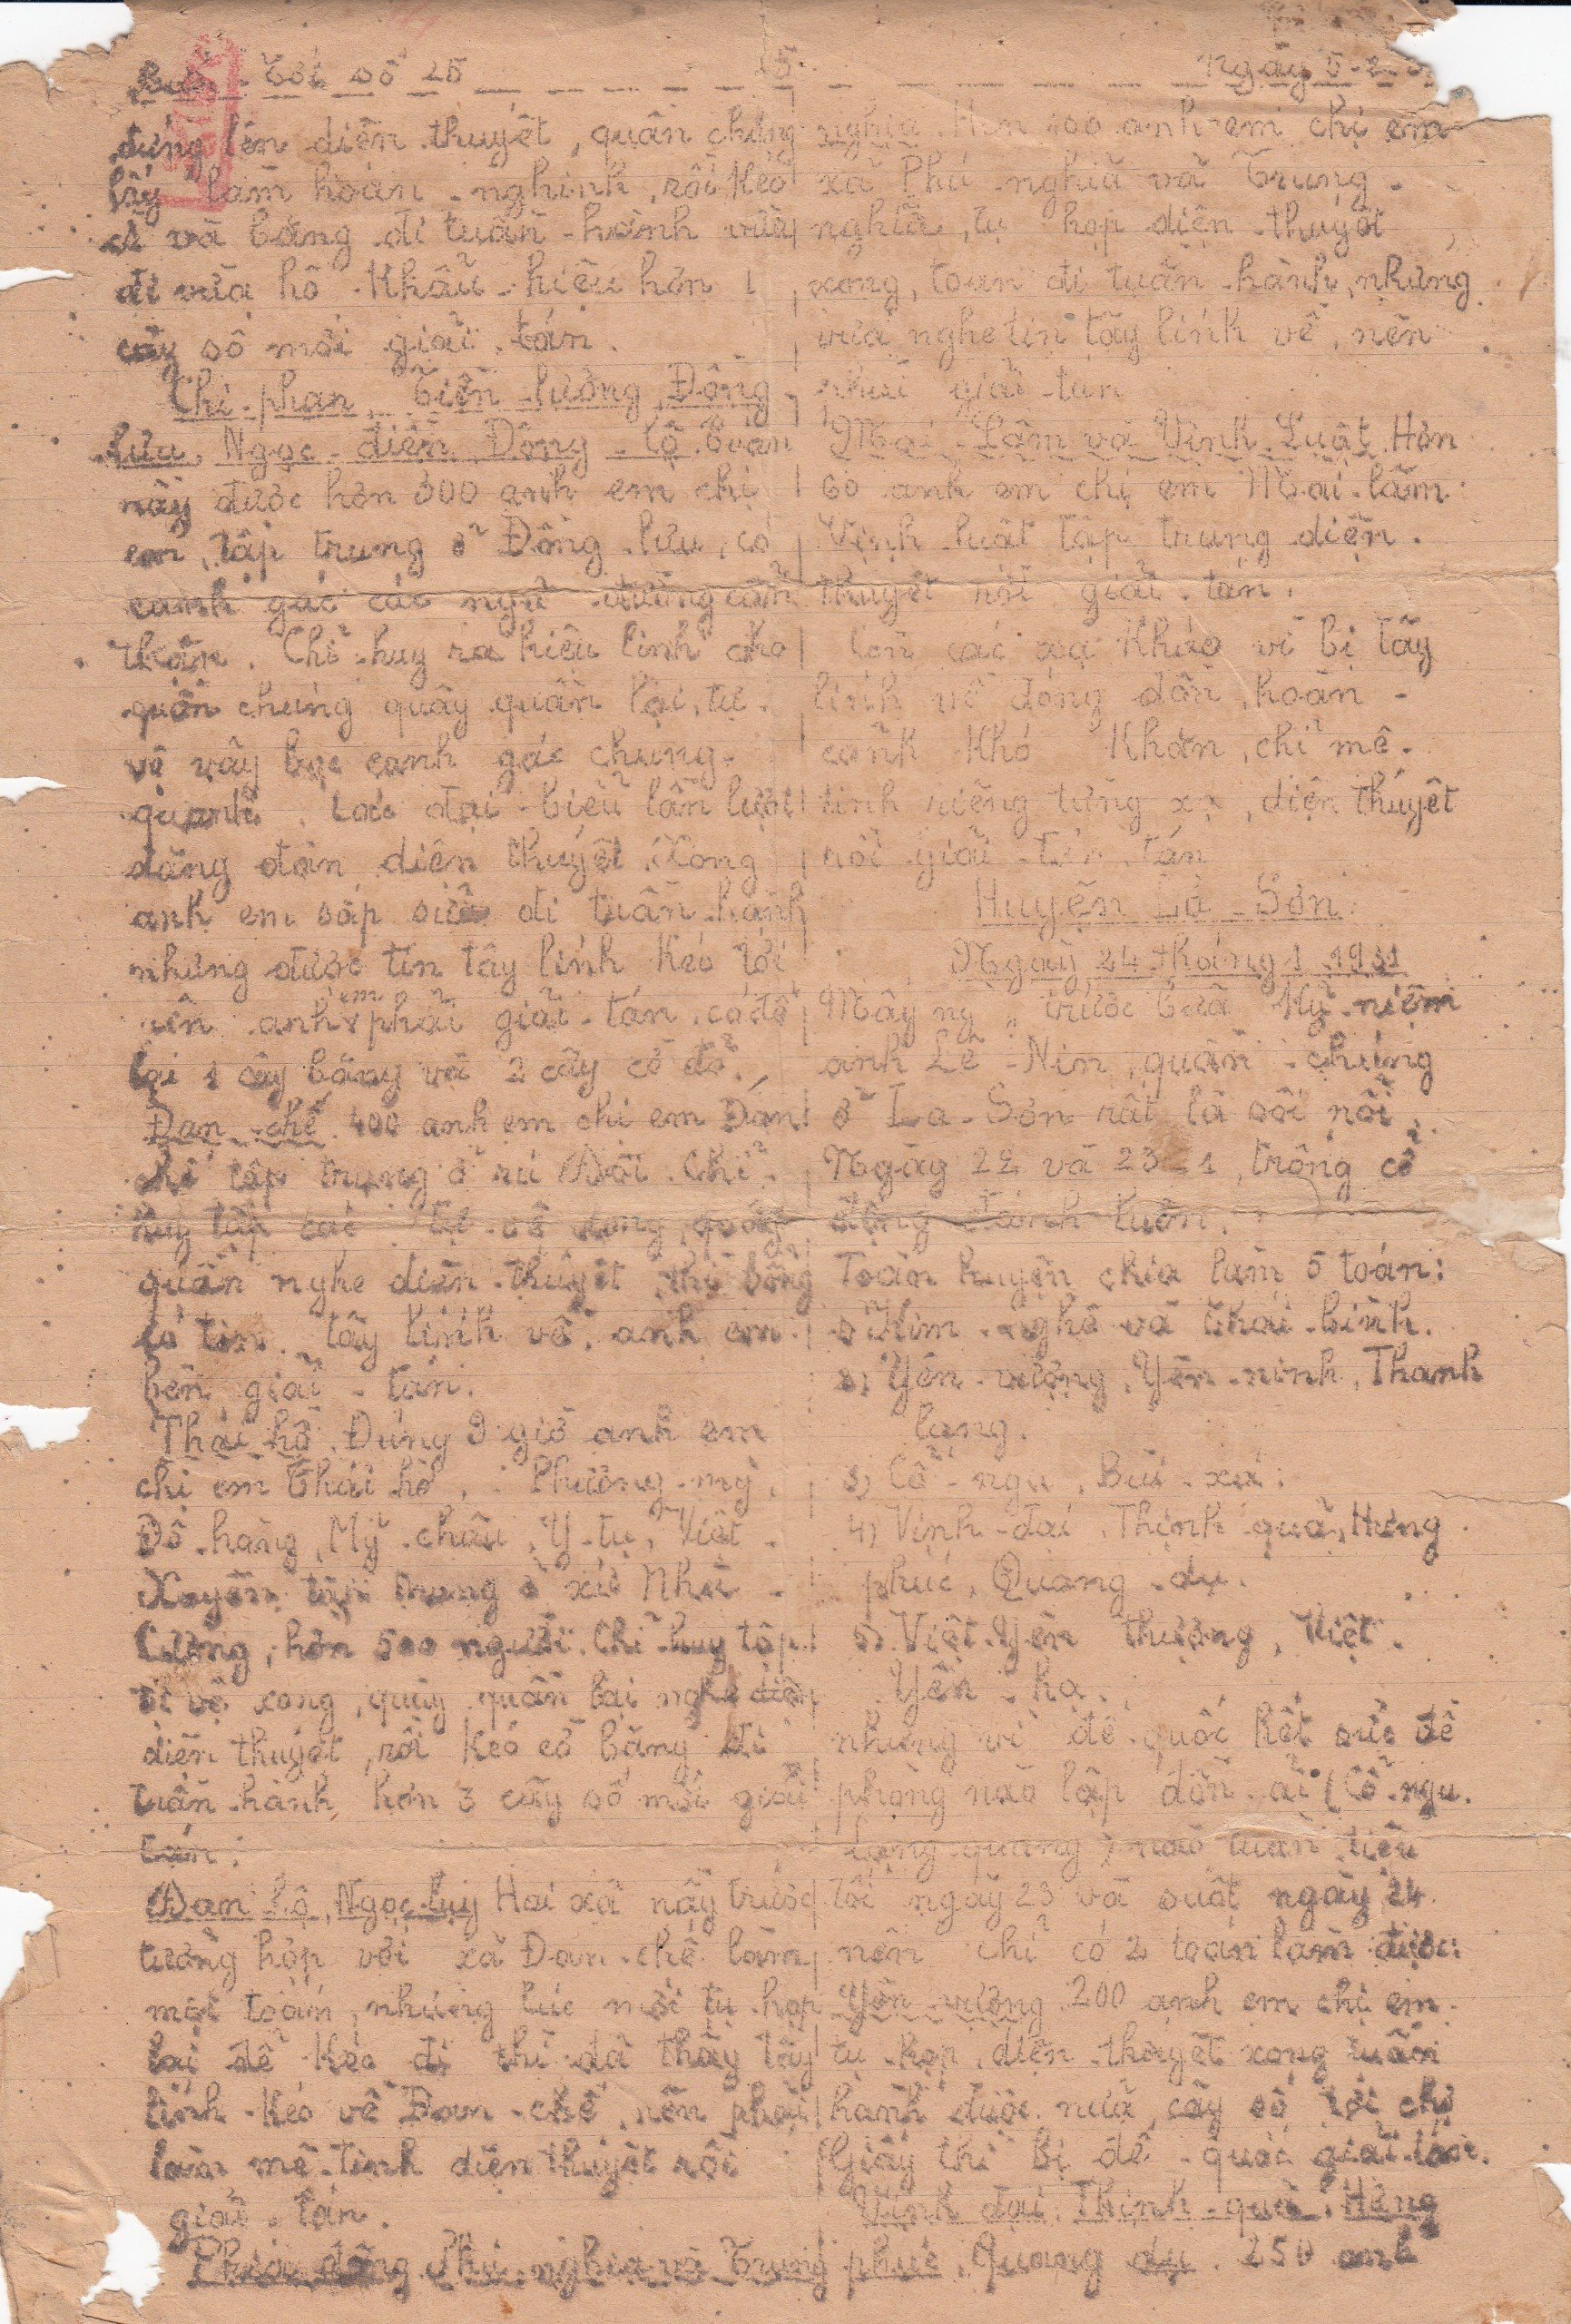 Tới số 25 5 Ngày 5-2
đứng lên diễn thuyết, quần chúng
lấy làm hoan-nghinh, rồi kéo
cờ và băng đi tuần-hành vừa
đi vừa hô khẩu-hiệu hơn 1
cây số mới giải tán.
Chi-phan, Tiền-lương, Đông
lưu, Ngọc-điền, Đông-lộ. Đoàn
nầy được hơn 300 anh em chị
em, tập trung ở Đông-lưu, có
canh gác các ngả đường cẩn
thận. Chỉ-huy ra hiệu lính cho
quần chúng quây quần lại, tự
vệ vây bọc canh gác chung-
quanh. Các đại-biểu lần lượt
đăng đàn diễn thuyết. Xong
anh em sắp sửa đi tuần-hành
nhưng được tin tây lính kéo tới
nên anh em phải giải-tán, có để
lại 1 cây băng và 2 cây cờ đỏ.
Đan-chế. 400 anh em chị em Đan
chế tập trung ở rú Đôi. Chỉ-
huy tập các tự-vệ xong, quây
quần nghe diễn-thuyết, thì bỗng
có tin tây lính về, anh em
bèn giải-tán.
Thái hồ. Đúng 9 giờ anh em
chị em Thái hồ, Phương-mỹ,
Đô-hang, Mỹ-châu, Y-tụ, Việt-
Xuyên tập trung ở xứ Nhà-
Cường, hơn 500 người. Chỉ-huy tập
tự vệ xong, quây quần lại nghe diễn
diễn thuyết, rồi kéo cờ băng đi
tuần-hành, hơn 3 cây số mới giải
tán.
Đan-lộ, Ngọc-luỵ Hai xã nầy trước
tưởng hợp với xã Đan-chế làm
một toán, nhưng lúc mới tụ họp
lại để kéo đi thì đã thấy tây
lính-kéo về Đan-chế, nên phải
làm mê-tinh diễn thuyết rồi
giải-tán.
Phúc động, Phú-nghĩa và Trung
nghĩa. Hơn 400 anh em chị em
xã Phú-nghĩa và Trung-
nghĩa, tụ họp diễn-thuyết
xong, toan đi tuần-hành, nhưng
vừa nghe tin tây lính về, nên
phải giải-tán
Mai-Lâm và Vĩnh-Luật. Hơn
60 anh em chị em Mai-lâm
Vĩnh-luật tập trung diễn-
thuyết rồi giải-tán.
Còn các xã khác vì bị tây
lính về đóng đồn, hoàn-
cảnh khó khăn, chỉ mê-
tinh riêng từng xã, diễn thuyết
rồi giải-tán tán
Huyện La-Sơn.
Ngày 24 tháng 1 1931
Mấy ng trước bữa kỷ-niệm
anh Lê-Nin, quần-chúng
ở La-Sơn rất là sôi nổi.
Ngày 22 và 23-1, trống cổ
động đánh luôn.
Toàn huyện chia làm 5 toán:
1) Kim-nghê và Thái-bình.
2) Yên-vượng, Yên-ninh, Thanh
lạng.
3) Cổ-ngu, Bùi-xá.
4) Vịnh-đại, Thịnh-quả, Hưng
phúc, Quang-dụ.
5) Việt-Yên thượng, Việt-
Yên-hạ.
nhưng vì đế-quốc hết sức đề
phòng nào lập đồn ải (Cổ-ngu.
Lạng-quang) nào tuần-tiễu
tối ngày 23 và suốt ngày 24
nên chỉ có 2 toán làm được:
Yên-vượng. 200 anh em chị em
tụ-họp, diễn-thuyết xong tuần
hành được nửa cây số tới chợ
Giấy thì bị đế-quốc giải-tán.
Vịnh đại, Thịnh-quả, Hưng
phúc, Quang dụ. 250 anh